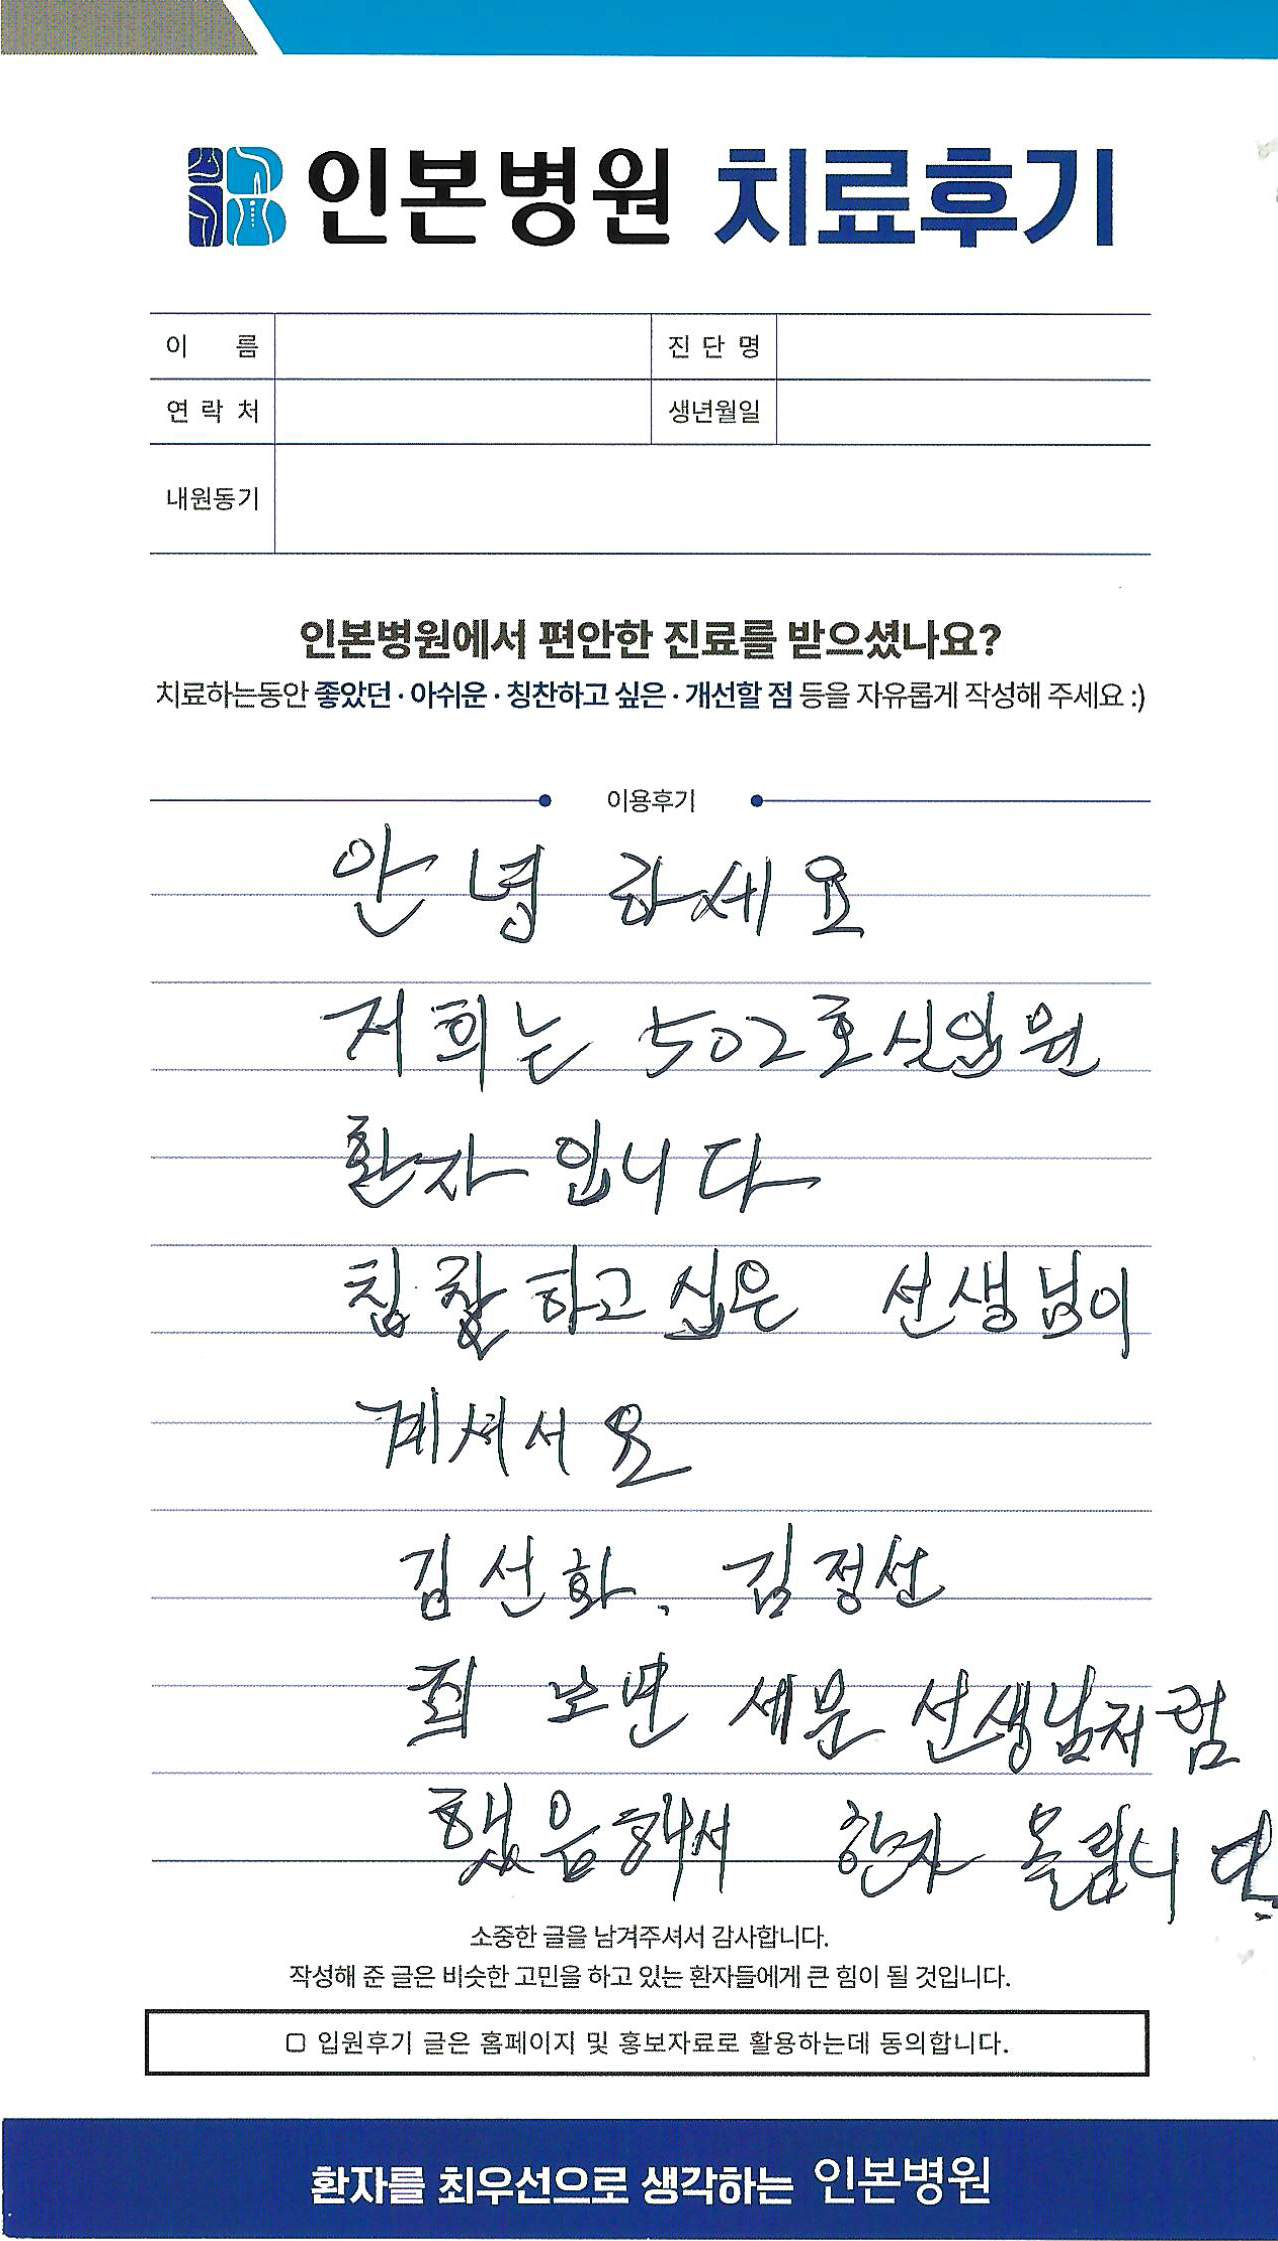 인본병원 치료후기
이 름
진 단 명
연 락 처
생년월일
내원동기
인본병원에서 편안한 진료를 받으셨나요?
치료하는동안 좋았던 · 아쉬운 · 칭찬하고 싶은 · 개선할 점 등을 자유롭게 작성해 주세요 :)
이용후기
안녕 하세요
저희는 502호실입원
환자 입니다
칭찬하고 싶은 선생님이
계셔서요
김선화, 김정선
노면 세분 선생님처럼
했음해서 한자 올립니다
소중한 글을 남겨주셔서 감사합니다.
작성해 준 글은 비슷한 고민을 하고 있는 환자들에게 큰 힘이 될 것입니다.
□ 입원후기 글은 홈페이지 및 홍보자료로 활용하는데 동의합니다.
환자를 최우선으로 생각하는 인본병원